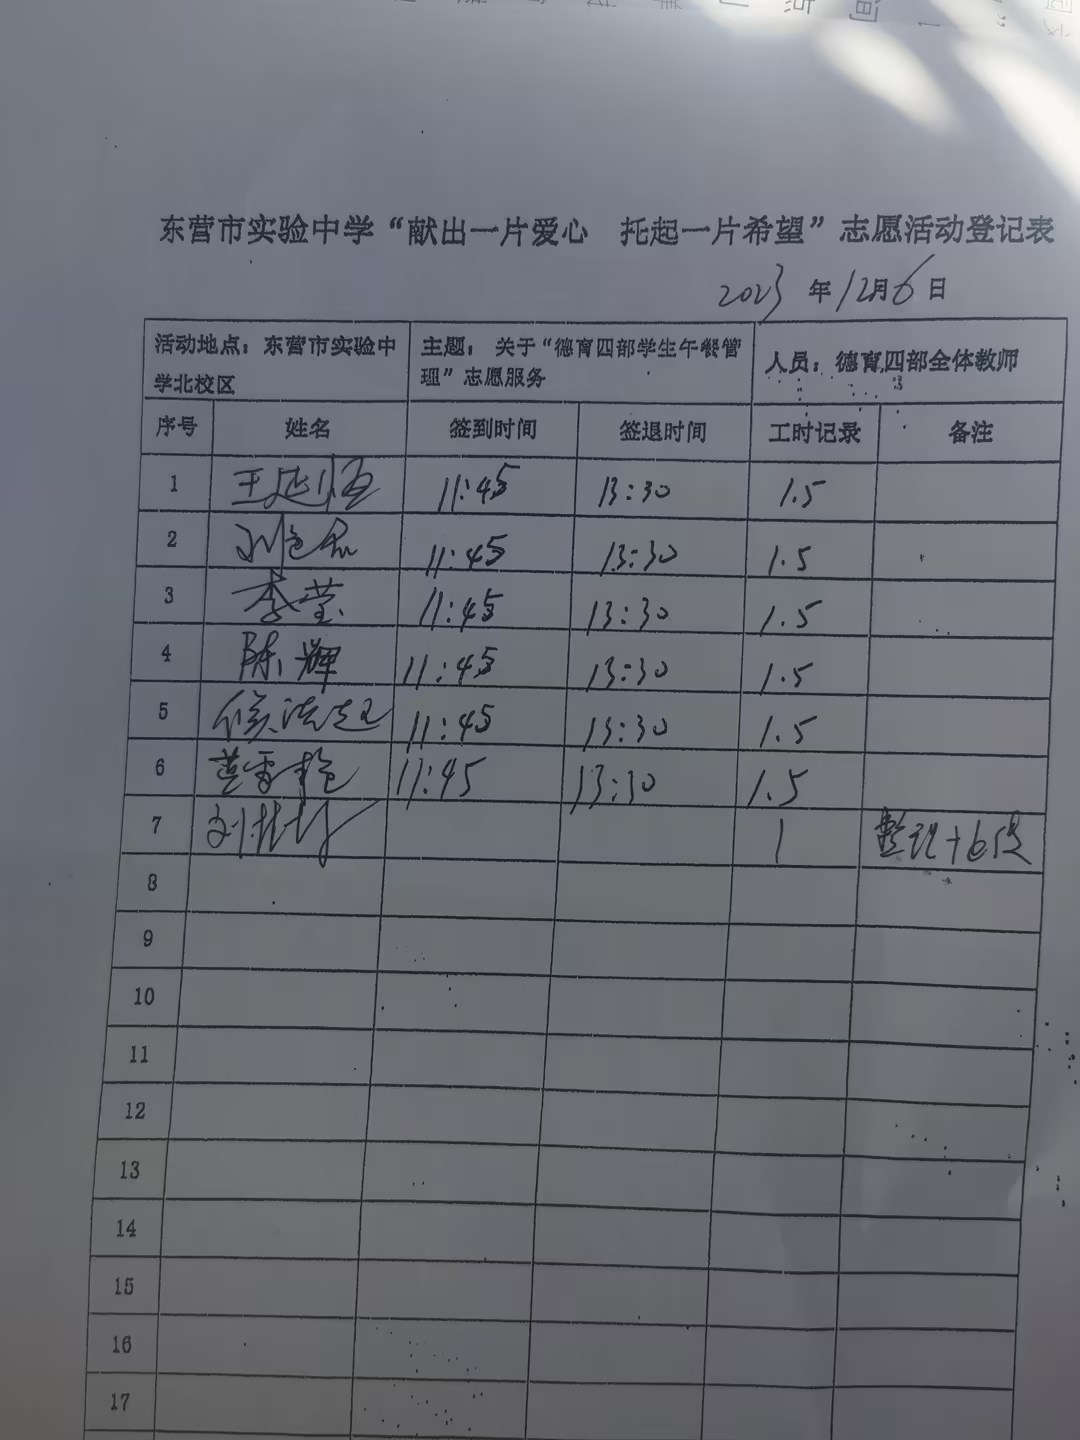 东营市实验中学“献出一片爱心 托起一片希望”志愿活动登记表
2023年12月6日
活动地点：东营市实验中学北校区 主题：关于“德育四部学生午餐管理”志愿服务 人员：德育四部全体教师
序号 姓名 签到时间 签退时间 工时记录 备注
1 王延恒 11:45 13:30 1.5
2 11:45 13:30 1.5
3 李莹 11:45 13:30 1.5
4 陈辉 11:45 13:30 1.5
5 11:45 13:30 1.5
6 11:45 13:30 1.5
7 1 整理
8
9
10
11
12
13
14
15
16
17